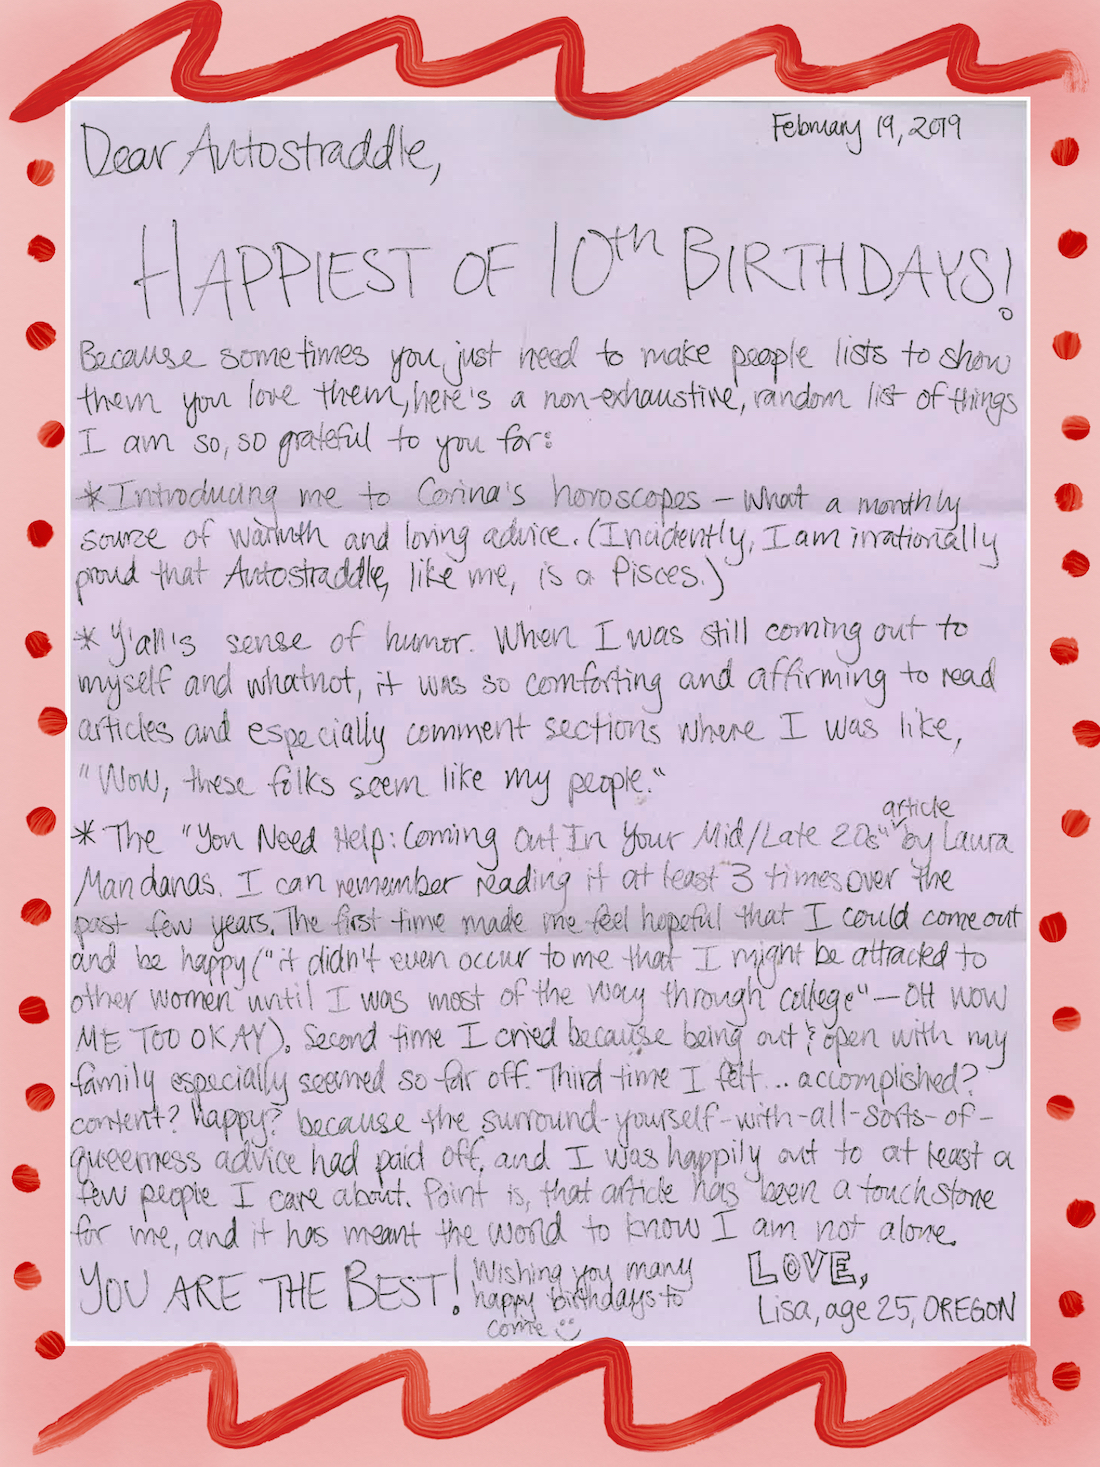 February 19, 2019
Dear Autostraddle,
HAPPIEST OF 10th BIRTHDAYS!
Because sometimes you just need to make people lists to show
them you love them, here's a non-exhaustive, random list of things
I am so, so grateful to you for:
* Introducing me to Corina's horoscopes – what a monthly
source of warmth and loving advice. (Incidently, I am irrationally
proud that Autostraddle, like me, is a Pisces.)
* Y'all's sense of humor. When I was still coming out to
myself and whatnot, it was so comforting and affirming to read
articles and especially comment sections where I was like,
"Wow, these folks seem like my people."
* The "You Need Help: Coming Out In Your Mid/Late 20s" article by Laura
Mandanas. I can remember reading it at least 3 times over the
past few years. The first time made me feel hopeful that I could come out
and be happy ("it didn't even occur to me that I might be attracted to
other women until I was most of the way through college" – OH WOW
ME TOO OKAY). Second time I cried because being out & open with my
family especially seemed so far off. Third time I felt... accomplished?
content? happy? because the surround-yourself-with-all-sorts-of-
queerness advice had paid off, and I was happily out to at least a
few people I care about. Point is, that article has been a touchstone
for me, and it has meant the world to know I am not alone.
YOU ARE THE BEST!
Wishing you many
happy birthdays to
come
LOVE,
Lisa, age 25, OREGON